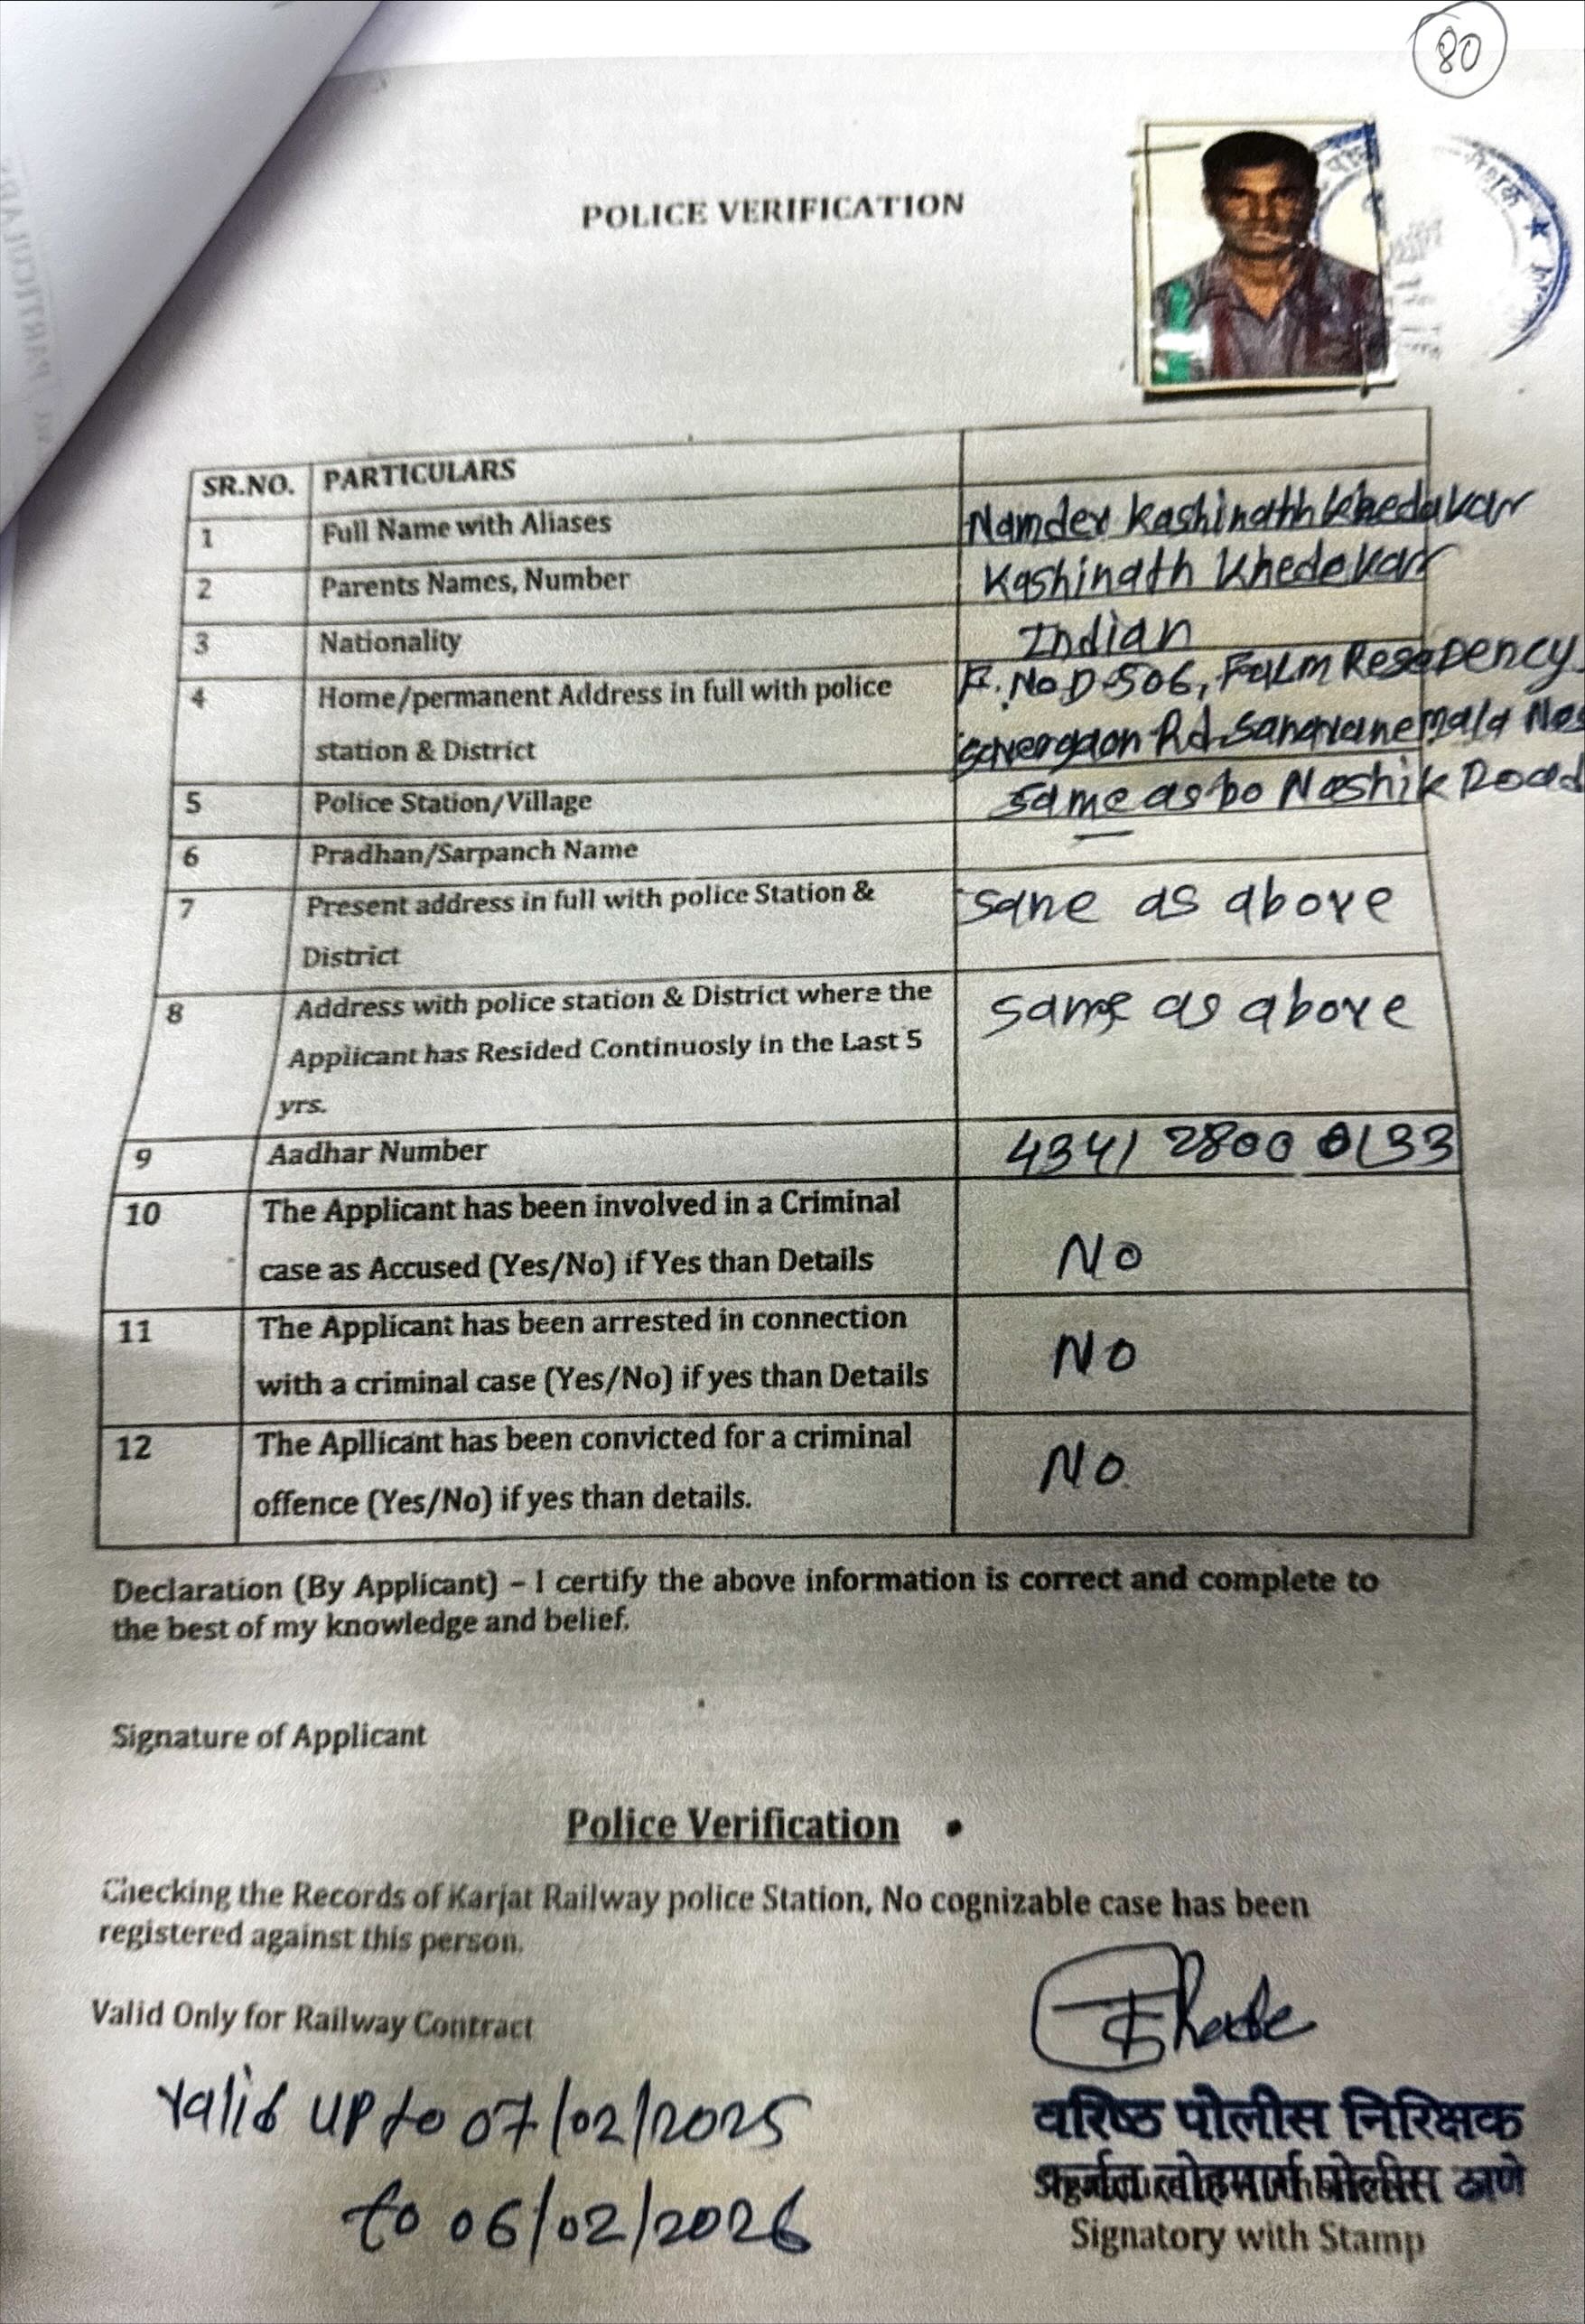 80
POLICE VERIFICATION
SR.NO. PARTICULARS
1 Full Name with Aliases Namdev Kashinath Khedakar
2 Parents Names, Number Kashinath Khedekar
3 Nationality Indian
4 Home/permanent Address in full with police F. No D-506, Palm Resedency
station & District Rd. mala
5 Police Station/Village same as Nashik Road
6 Pradhan/Sarpanch Name
7 Present address in full with police Station & sane as above
District
8 Address with police station & District where the same as above
Applicant has Resided Continuosly in the Last 5
yrs.
9 Aadhar Number 4341 2800 0133
10 The Applicant has been involved in a Criminal
case as Accused (Yes/No) if Yes than Details No
11 The Applicant has been arrested in connection
with a criminal case (Yes/No) if yes than Details No
12 The Apllicant has been convicted for a criminal No
offence (Yes/No) if yes than details.
Declaration (By Applicant) – I certify the above information is correct and complete to
the best of my knowledge and belief.
Signature of Applicant
Police Verification
Checking the Records of Karjat Railway police Station, No cognizable case has been
registered against this person.
Valid Only for Railway Contract
Valid up to 07/02/2025
to 06/02/2026
वरिष्ठ पोलीस निरिक्षक
कर्जत लोहमार्ग पोलीस ठाणे
Signatory with Stamp